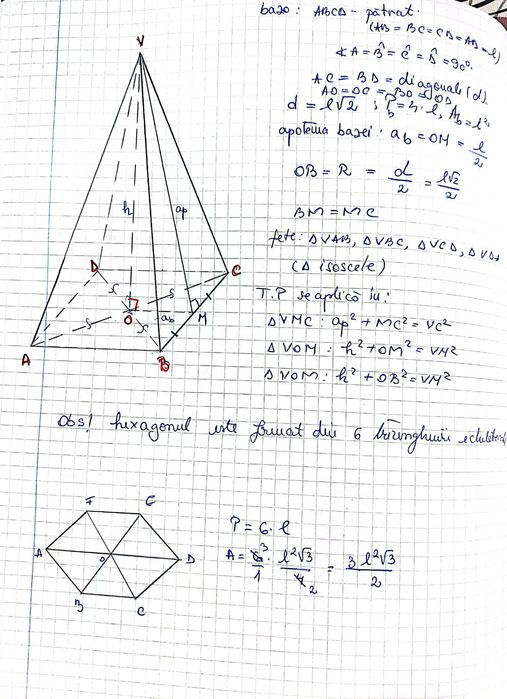 bazo: ABCD - pătrat.
(AB = BC = CD = AD = l)
∢A = B̂ = Ĉ = D̂ = 90°.
AC = BD = diagonale (d).
AO = OC = BO = OD
d = l√2 ; P_b = 4·l, A_b = l²
apotema bazei: a_b = OM = l/2
OB = R = d/2 = l√2/2
BM = MC
fețe: ΔVAB, ΔVBC, ΔVCD, ΔVDA
(Δ isoscele)
T.P se aplică în:
ΔVMC: ap² + MC² = VC²
ΔVOM: h² + OM² = VM²
ΔVOM: h² + OB² = VM²
V
h
ap
D
C
O
a_b
M
A
B
Obs! hexagonul este format din 6 triunghiuri echilaterale
F
E
A
O
D
B
C
P = 6·l
A = 6³/1 · l²√3/4₂ = 3l²√3/2